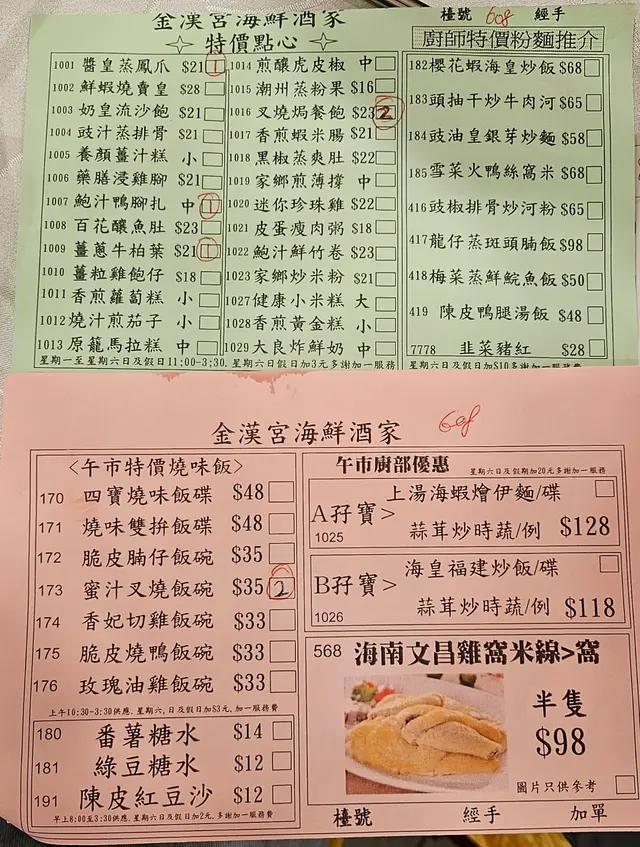 金漢宮海鮮酒家
特價點心
檯號 608 經手
廚師特價粉麵推介
1001 醬皇蒸鳳爪 $21 1
1002 鮮蝦燒賣皇 $28
1003 奶皇流沙飽 $21
1004 豉汁蒸排骨 $21
1005 養顏薑汁糕 小
1006 藥膳浸雞腳 $21
1007 鮑汁鴨腳扎 中 1
1008 百花釀魚肚 $23
1009 薑蔥牛柏葉 $21 1
1010 薑粒雞飽仔 $18
1011 香煎蘿蔔糕 小
1012 燒汁煎茄子 小
1013 原籠馬拉糕 中
1014 煎釀虎皮椒 中
1015 潮州蒸粉果 $16
1016 叉燒焗餐飽 $23 2
1017 香煎蝦米腸 $21
1018 黑椒蒸爽肚 $22
1019 家鄉煎薄撐 中
1020 迷你珍珠雞 $22
1021 皮蛋瘦肉粥 $18
1022 鮑汁鮮竹卷 $23
1023 家鄉炒米粉 $21
1027 健康小米糕 大
1028 香煎黃金糕 小
1029 大良炸鮮奶 中
星期一至星期六日及假日11:00-3:30. 星期六日假日加3元多謝加一服務
182 櫻花蝦海皇炒飯 $68
183 頭抽干炒牛肉河 $65
184 豉油皇銀芽炒麵 $58
185 雪菜火鴨絲窩米 $68
416 豉椒排骨炒河粉 $65
417 龍仔蒸斑頭腩飯 $98
418 梅菜蒸鮮鯇魚飯 $50
419 陳皮鴨腿湯飯 $48
7778 韭菜豬紅 $28
星期六日及假日加$10多謝加一服務費
金漢宮海鮮酒家 608
<午市特價燒味飯>
170 四寶燒味飯碟 $48
171 燒味雙拚飯碟 $48
172 脆皮腩仔飯碗 $35
173 蜜汁叉燒飯碗 $35 2
174 香妃切雞飯碗 $33
175 脆皮燒鴨飯碗 $33
176 玫瑰油雞飯碗 $33
上午10:30-3:30供應. 星期六,日及假日加$3元,加一服務費
180 番薯糖水 $14
181 綠豆糖水 $12
191 陳皮紅豆沙 $12
早上8:00至3:30供應. 星期六日及假日加2元,多謝加一服務費
午市廚部優惠 星期六日及假期加20元多謝加一服務
A孖寶> 上湯海蝦燴伊麵/碟
1025 蒜茸炒時蔬/例 $128
B孖寶> 海皇福建炒飯/碟
1026 蒜茸炒時蔬/例 $118
568 海南文昌雞窩米線>窩
半隻
$98
圖片只供參考
檯號 經手 加單